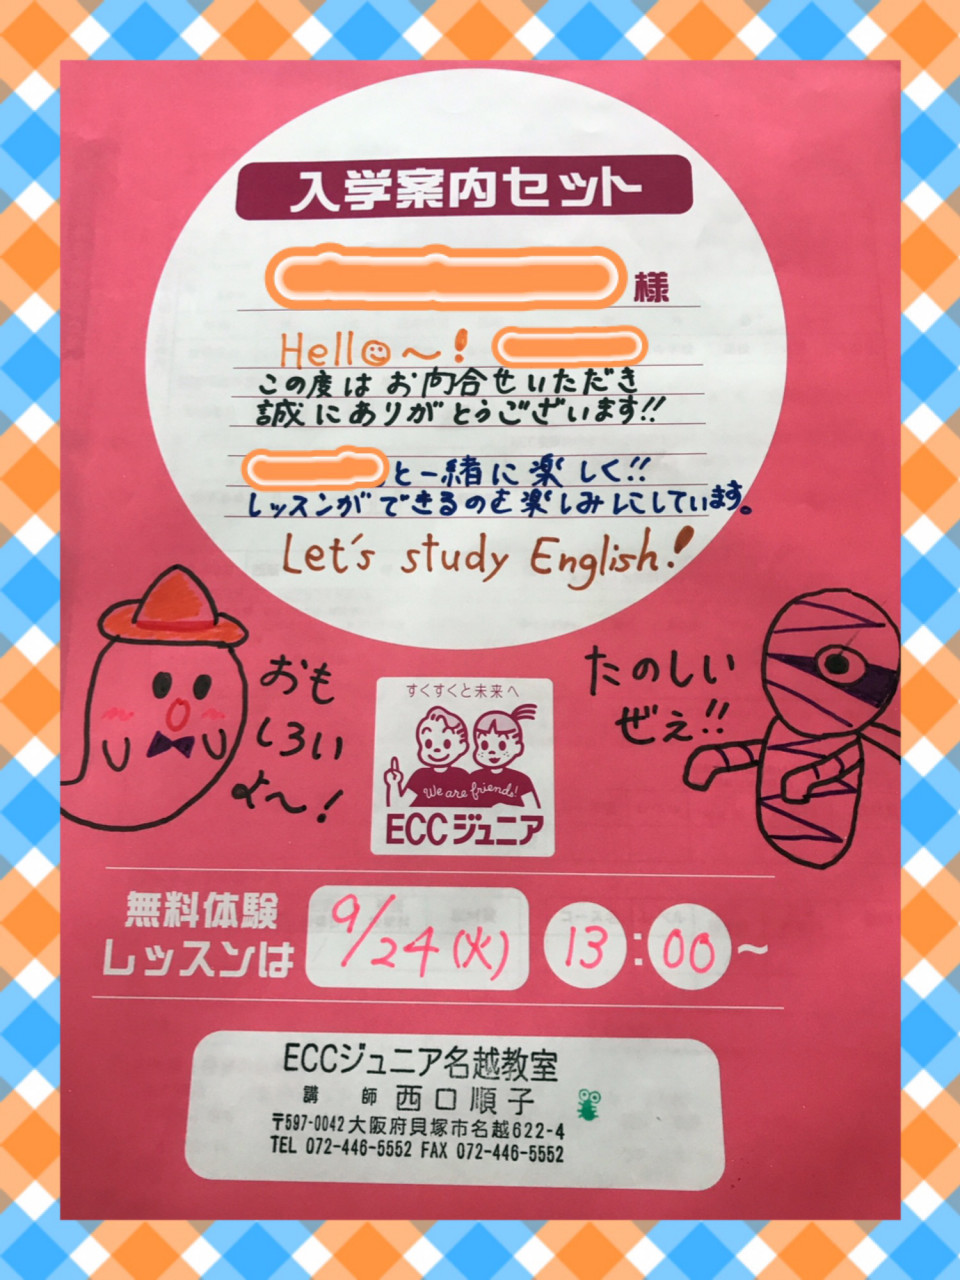 入学案内セット
様
Hello～!
この度はお問合せいただき
誠にありがとうございます!!
と一緒に楽しく!!
レッスンができるのを楽しみにしています。
Let's study English!
おも
しろい
よ～!
たのしい
ぜぇ!!
すくすくと未来へ
We are friends!
ECCジュニア
無料体験
レッスンは
9/24(火) 13:00～
ECCジュニア名越教室
講師 西口順子
〒597-0042 大阪府貝塚市名越622-4
TEL 072-446-5552 FAX 072-446-5552